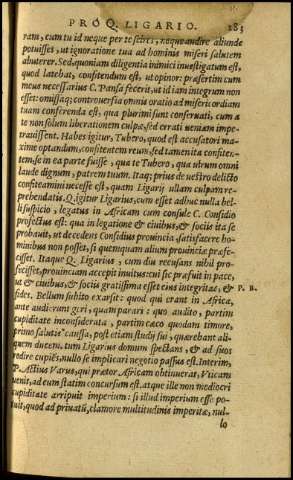 PRO Q. LIGARIO. 283
ram, cum tu id neque per te scires, neque audire aliunde
potuisses, ut ignoratione tua ad hominis miseri salutem
abuterer. Sed, quoniam diligentia inimici inuestigatum est,
quod latebat, confitendum est, ut opinor: præsertim cum
meus necessarius C. Pansa fecerit, ut id iam integrum non
esset: omissaq; controuersia omnis oratio ad misericordiam
tuam conferenda est, qua plurimi sunt conseruati, cum a
te non solum liberationem culpæ, sed errati ueniam impe-
trauissent. Habes igitur, Tubero, quod est accusatori ma-
xime optandum, confitentem reum, sed tamen ita confiten-
tem, se in ea parte fuisse, qua te Tubero, qua uirum omni
laude dignum, patrem tuum. Itaq; prius de uestro delicto
confiteamini necesse est, quam Ligarij ullam culpam re-
prehendatis. Q. igitur Ligarius, cum esset adhuc nulla bel-
li suspicio, legatus in Africam cum consule C. Considio
profectus est: qua in legatione & ciuibus, & socijs ita se
probauit, ut decedens Considius prouincia satisfacere ho-
minibus non posset, si quemquam alium prouinciæ præfe-
cisset. Itaque Q. Ligarius, cum diu recusans nihil pro-
fecisset, prouinciam accepit inuitus: cui sic præfuit in pace,
ut & ciuibus, & socijs gratissima esset eius integritas, & P. R.
fides. Bellum subito exarsit: quod qui erant in Africa,
ante audierunt geri, quam parari: quo audito, partim
cupiditate inconsiderata, partim cæco quodam timore,
primo salutis caussa, post etiam studij sui, quærebant ali-
quem ducem. tum Ligarius domum spectans, & ad suos
redire cupiẽs, nullo se implicari negotio passus est. Interim,
P. Actius Varus, qui prætor Africam obtinuerat, Vticam
uenit, ad eum statim concursum est. atque ille non mediocri
cupiditate arripuit imperium: si illud imperium esse po-
tuit, quod ad priuatũ, clamore multitudinis imperitæ, nul-
lo